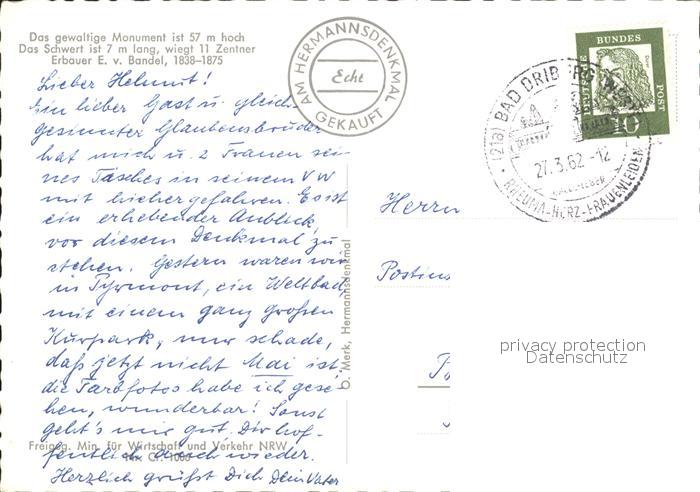 Das gewaltige Monument ist 57 m hoch
Das Schwert ist 7 m lang, wiegt 11 Zentner
Erbauer E. v. Bandel, 1838–1875
AM HERMANNSDENKMAL
Echt
GEKAUFT
DEUTSCHE BUNDES POST
10
(21a) BAD DRIBURG
27.3.62-12
RHEUMA-HERZ-FRAUENLEIDEN
Lieber Helmut!
Ein lieber Gast u. gleich
gesinnter Glaubensbruder
hat mich u. 2 Frauen sei-
nes Tisches in seinem VW
mit hierher gefahren. Es ist
ein erhebender Anblick,
vor diesem Denkmal zu
stehen. Gestern waren wir
in Pyrmont, ein Weltbad,
mit einem ganz großen
Kurpark, nur schade,
daß jetzt nicht Mai ist,
die Farbfotos habe ich gese-
hen, wunderbar! Sonst
geht's mir gut. Dir hof-
fentlich auch wieder.
Herzlich grüßt Dich Dein Vater
Freigeg. Min. für Wirtschaft und Verkehr NRW
b. Merk, Hermannsdenkmal
Herrn
Postins
privacy protection
Datenschutz